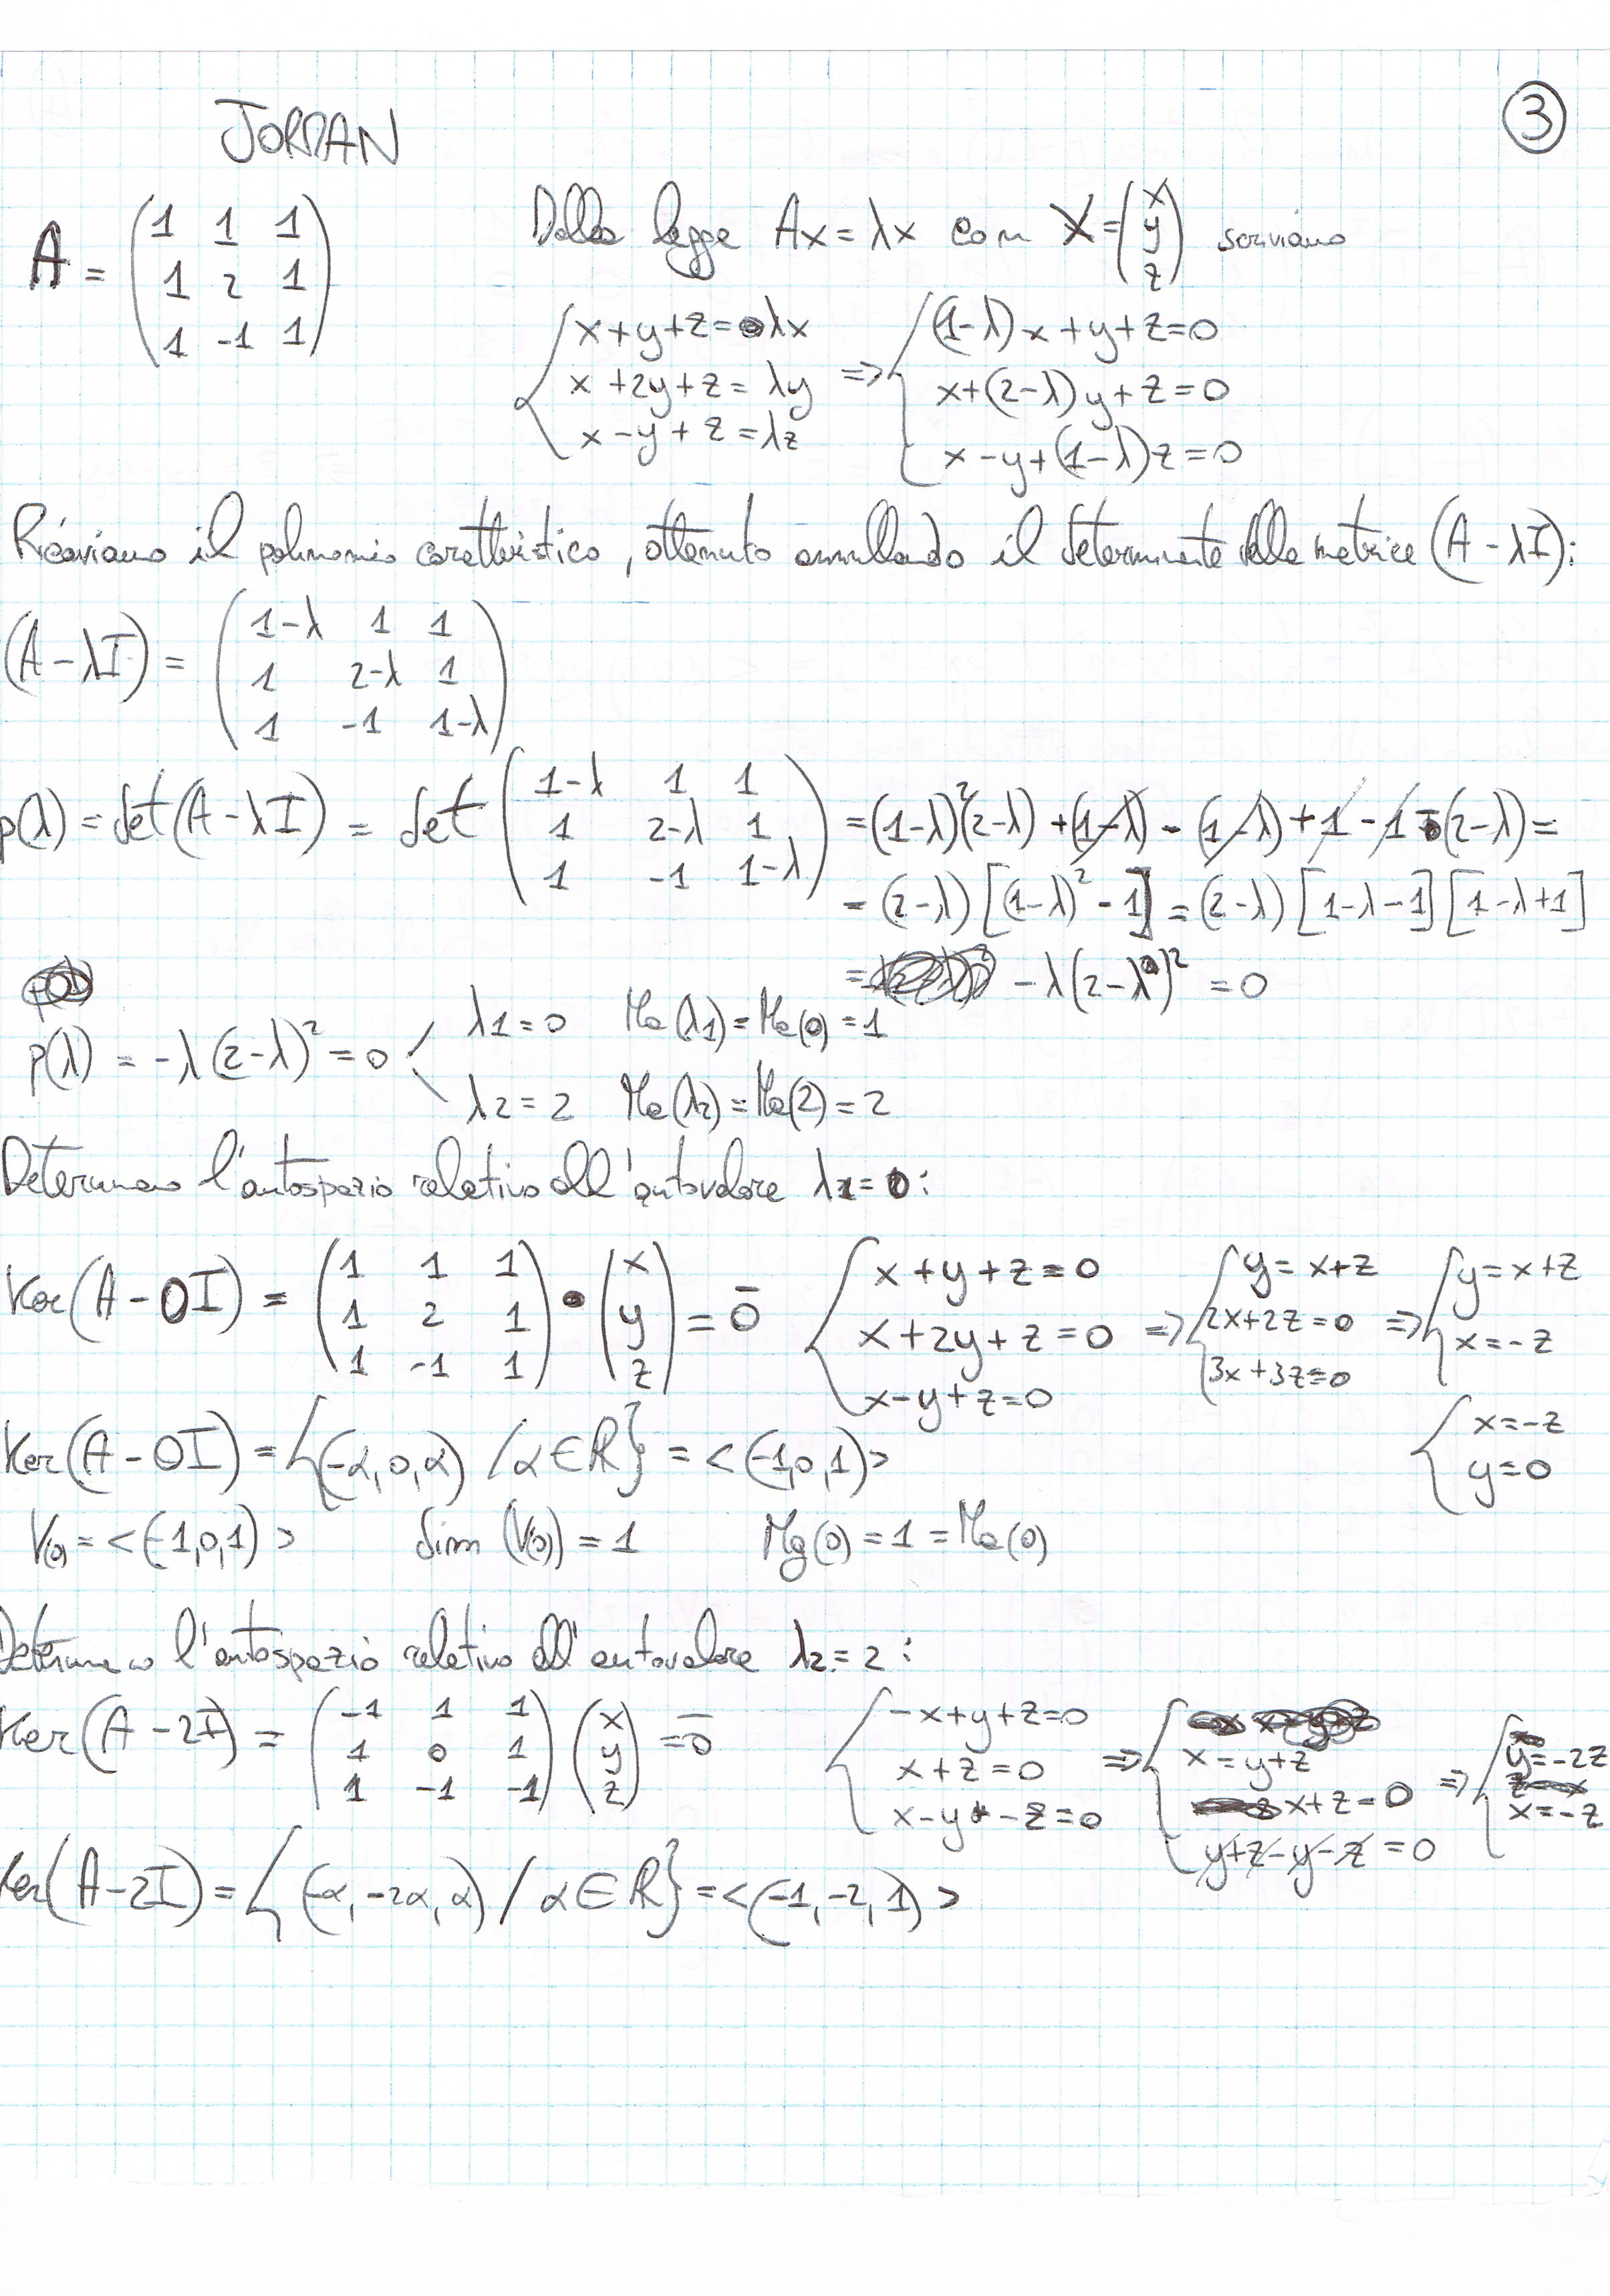 JORDAN
3
A = (1 1 1
1 2 1
1 -1 1)
Dalla legge Ax = λx con X = (x y z) scriviamo
{ x+y+z = λx
x+2y+z = λy
x-y+z = λz
=> { (1-λ)x+y+z=0
x+(2-λ)y+z=0
x-y+(1-λ)z=0
Ricaviamo il polinomio caratteristico, ottenuto annullando il determinante della matrice (A-λI):
(A-λI) = (1-λ 1 1
1 2-λ 1
1 -1 1-λ)
p(λ) = det(A-λI) = det (1-λ 1 1
1 2-λ 1
1 -1 1-λ)
= (1-λ)²(2-λ) + (1-λ) - (1-λ) + 1 - 1 - (2-λ) =
= (2-λ)[(1-λ)² - 1] = (2-λ)[1-λ-1][1-λ+1]
= -λ(2-λ)² = 0
p(λ) = -λ(2-λ)² = 0
λ1 = 0 Ma(λ1) = Ma(0) = 1
λ2 = 2 Ma(λ2) = Ma(2) = 2
Determino l'autospazio relativo all'autovalore λ1 = 0:
Ker(A-0I) = (1 1 1
1 2 1
1 -1 1) • (x y z) = 0̄
{ x+y+z=0
x+2y+z=0
x-y+z=0
=> { y=x+z
2x+2z=0
3x+3z=0
=> { y=x+z
x=-z
{ x=-z
y=0
Ker(A-0I) = {(-α,0,α) / α∈R} = <(-1,0,1)>
V(0) = <(-1,0,1)> dim(V(0)) = 1 Mg(0) = 1 = Ma(0)
Determino l'autospazio relativo all'autovalore λ2 = 2:
Ker(A-2I) = (-1 1 1
1 0 1
1 -1 -1) (x y z) = 0̄
{ -x+y+z=0
x+z=0
x-y-z=0
=> { x=y+z
x+z=0
y+z-y-z=0
=> { y=-2z
x=-z
Ker(A-2I) = {(-α,-2α,α) / α∈R} = <(-1,-2,1)>